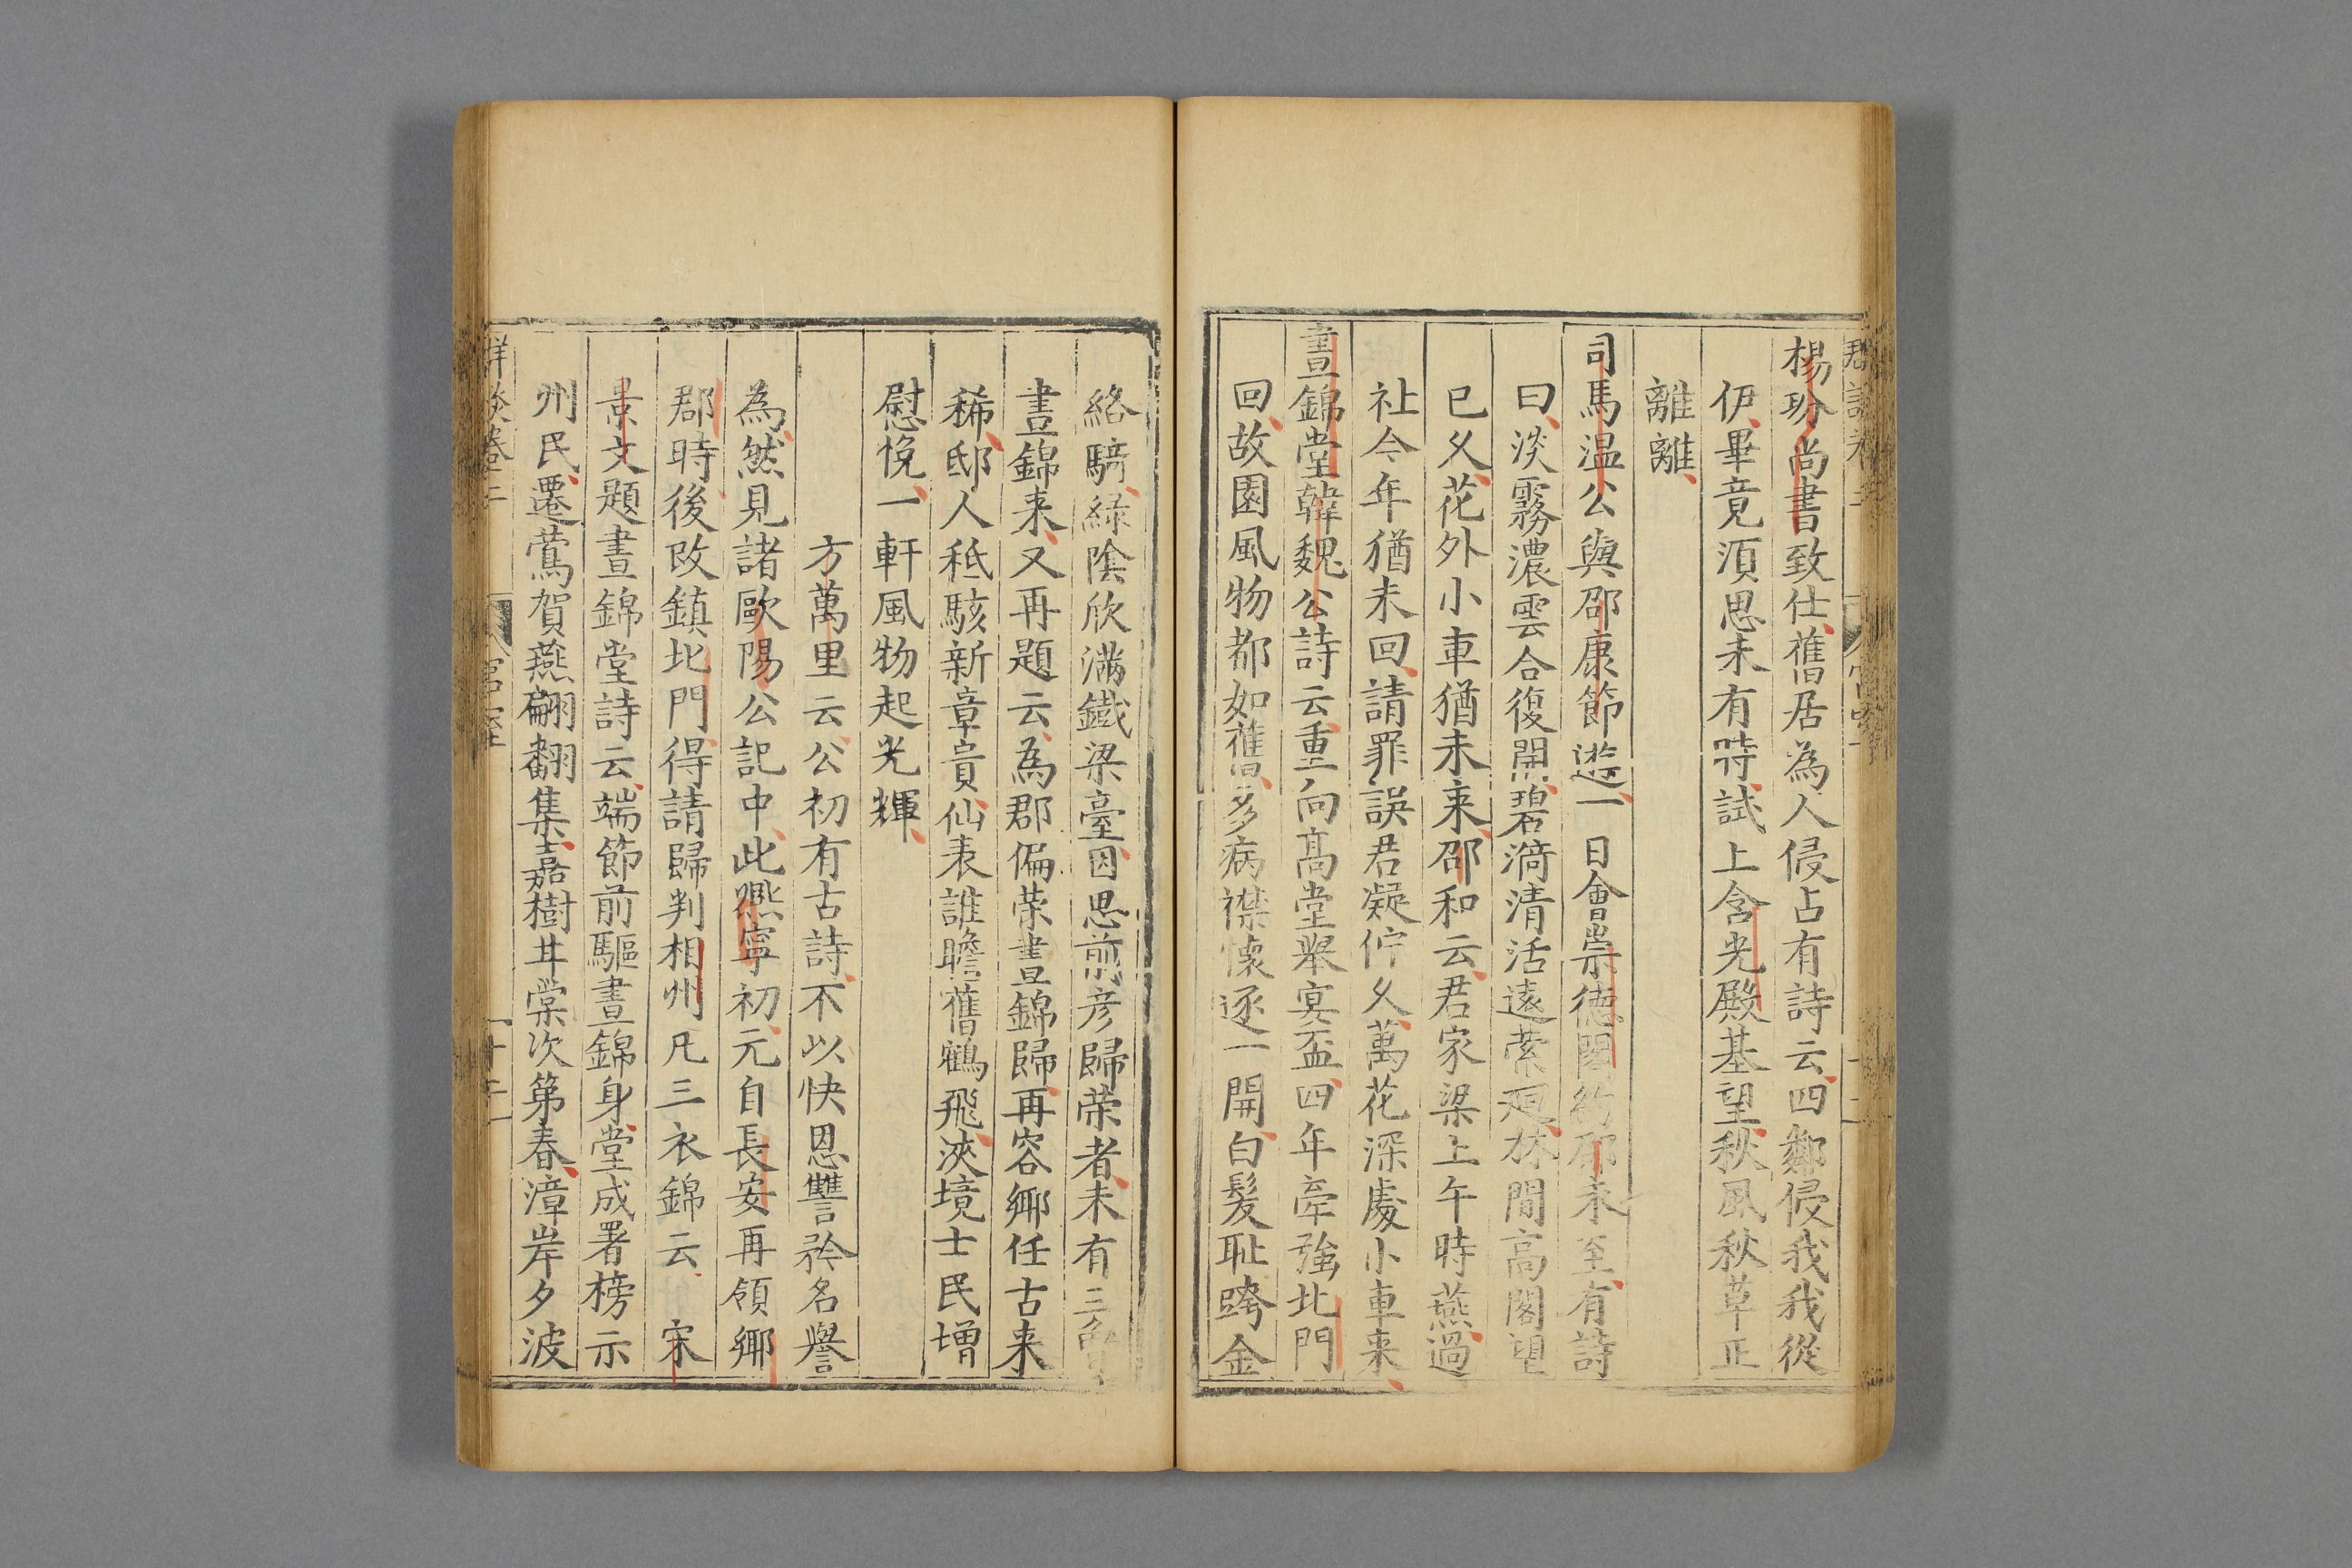 楊玢尚書致仕舊居為人侵占有詩云四鄰侵我我從
伊畢竟須思未有時試上含光殿基望秋風秋草正
離離
司馬温公與邵康節遊一日會崇德閣約邵未至有詩
曰淡霧濃雲合復開碧漪清活遠縈廻林間高閣望
已久花外小車猶未来邵和云君家梁上午時燕過
社今年猶未回請罪誤君凝佇久萬花深處小車来
晝錦堂韓魏公詩云重向髙堂舉宴盃四年牽強北門
回故園風物都如舊多病襟懷逐一開白髮耻跨金
絡騎緑陰欣滿鐵梁臺因思前彦歸荣者未有三
晝錦来又再題云為郡偏荣晝錦歸再容鄉任古来
稀邸人秪駭新章貴仙表誰瞻舊鶴飛浹境士民增
慰悅一軒風物起光輝
方萬里云公初有古詩不以快恩讐矜名譽
為然見諸歐陽公記中此熈寧初元自長安再領鄉
郡時後改鎮北門得請歸判相州凡三衣錦云宋
景文題晝錦堂詩云端節前驅晝錦身堂成署榜示
州民遷鶯賀燕翩翻集嘉樹甘棠次第春漳岸夕波